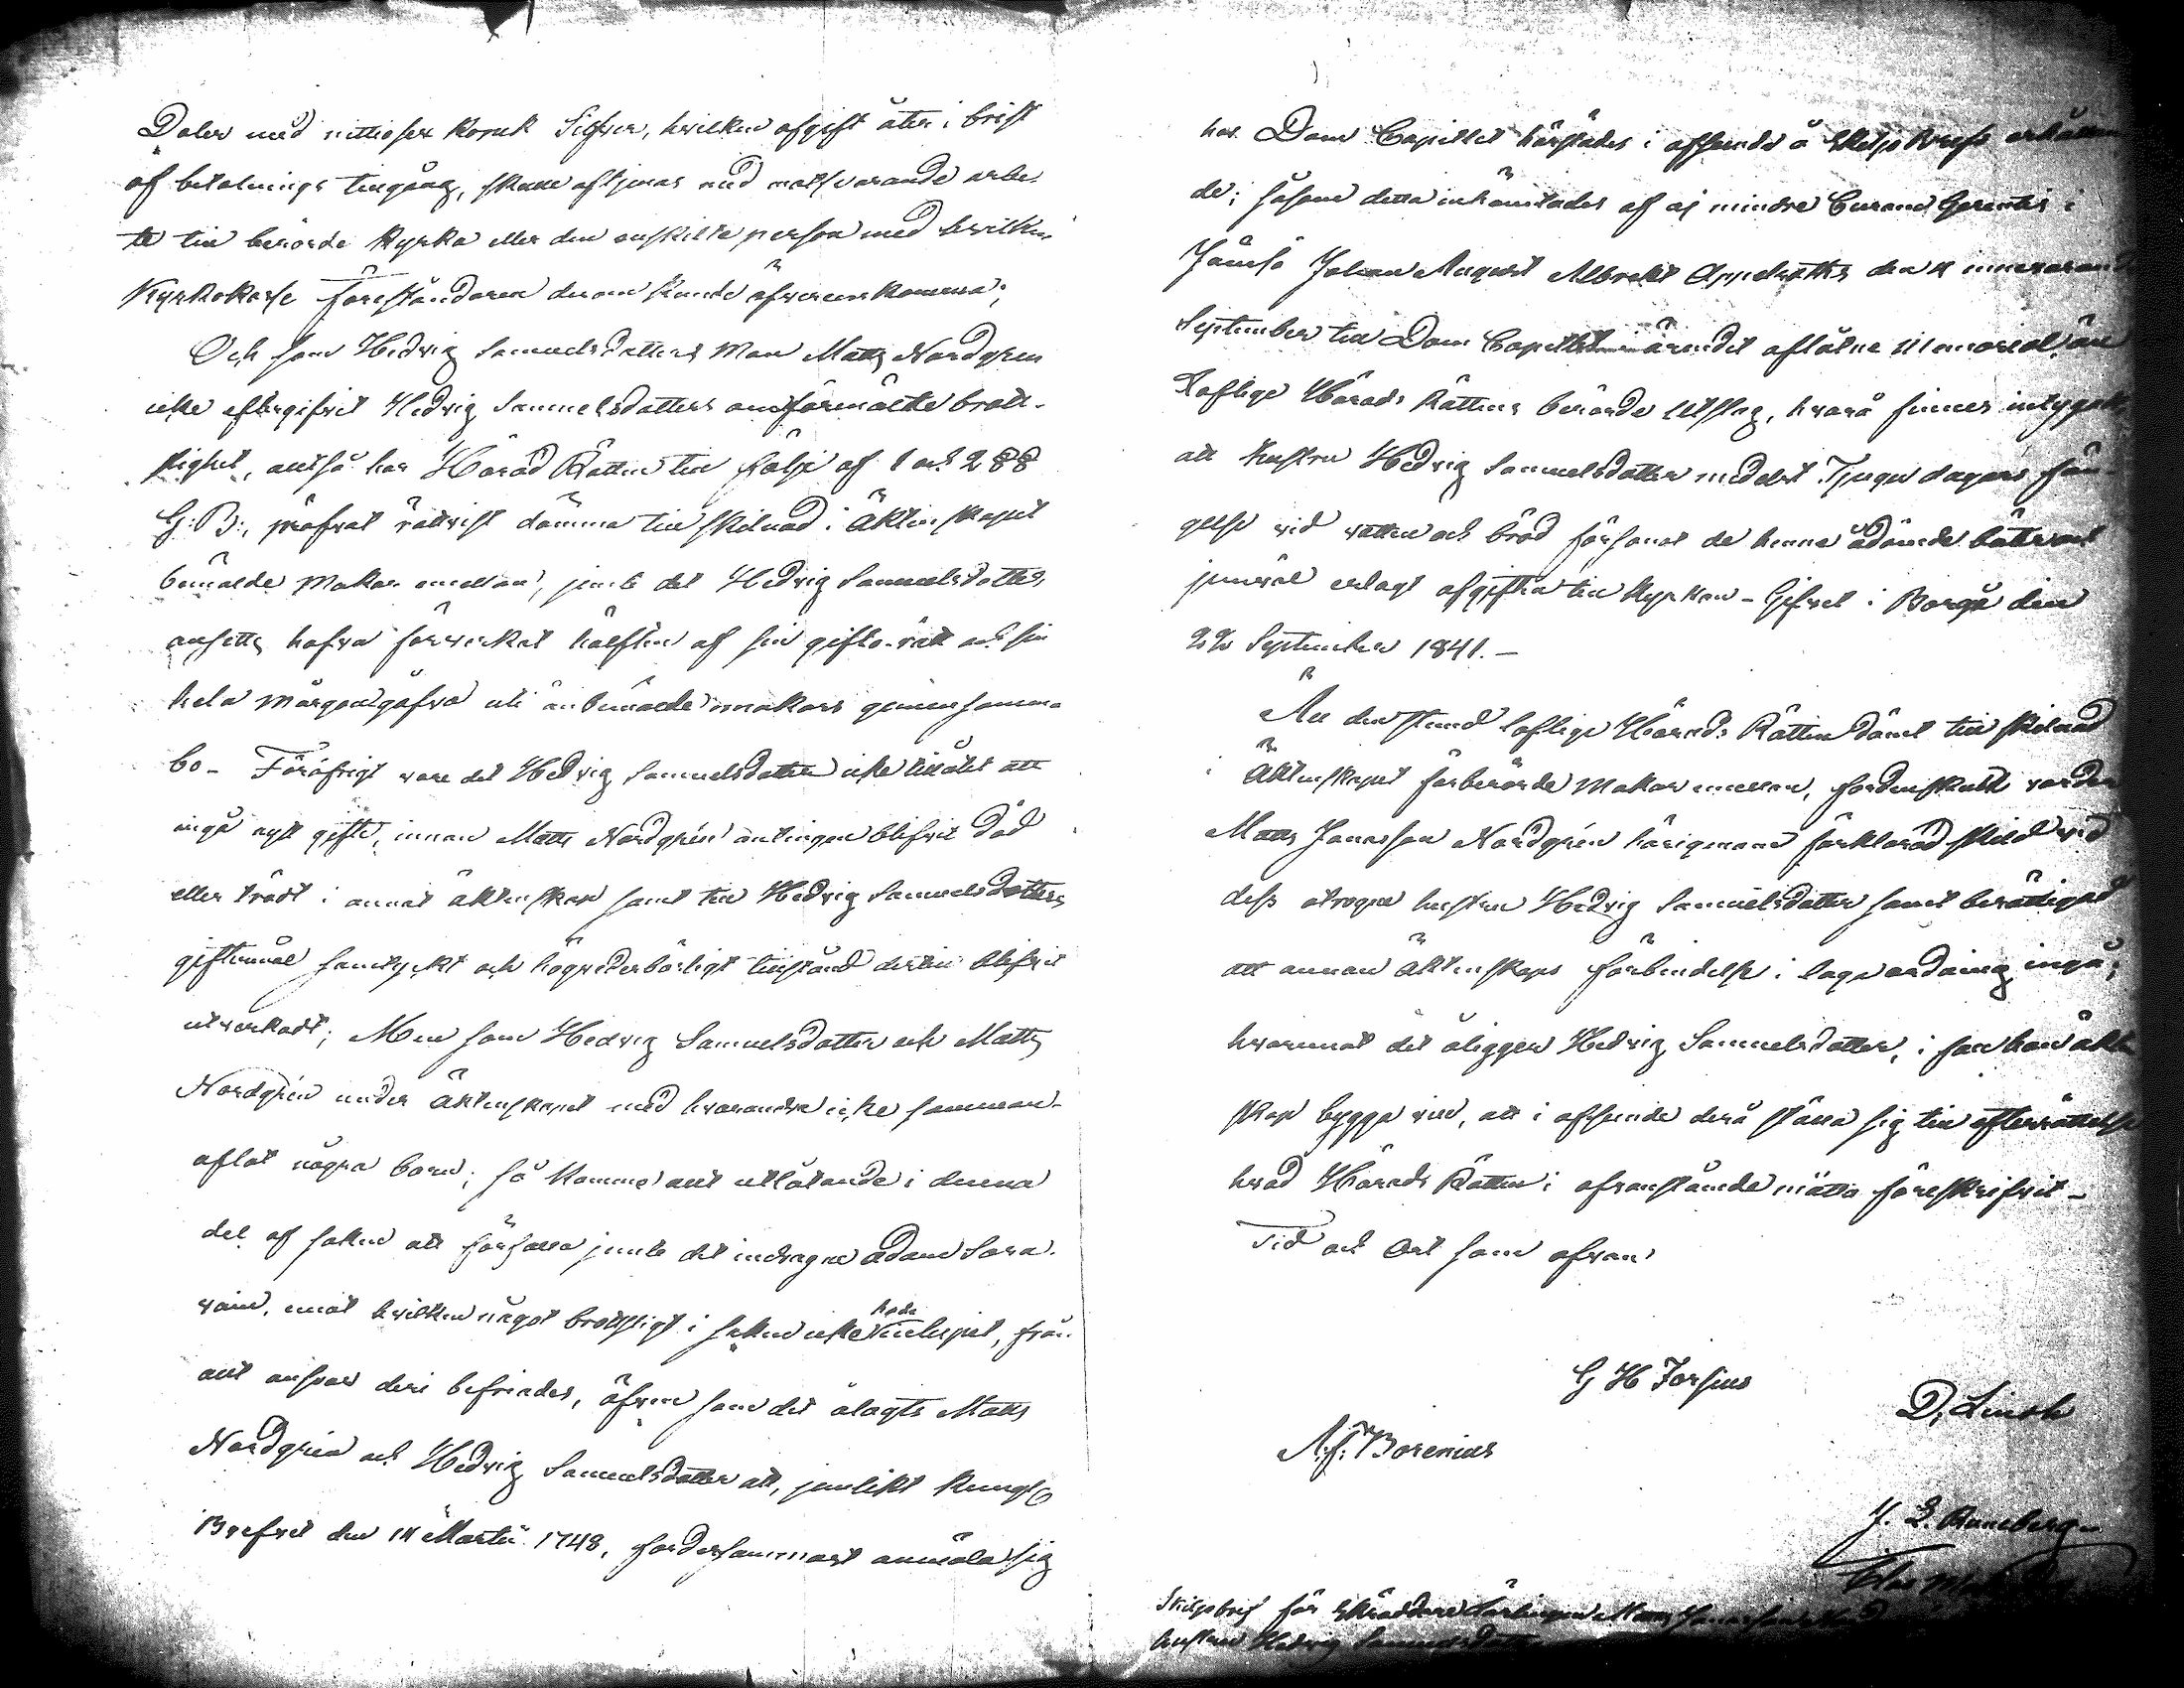 Daler med nittiosex Kopek Silfver, hvilken afgift åter i brist
af betalnings tillgång, skulle aftjenas med motsvarande arbe-
te till berörde Kyrka eller den enskilte person med hvilken
Kyrkokasse Föreståndaren derom kunde öfverenskomma;
Och som Hedvig Samuelsdotters Man Matts Nordgren
icke eftergifvit Hedvig Samuelsdotters omförmälte brott-
slighet, altså har Härads Rätten till följe af 1 och 2 §§
G: B:, pröfvat rättvist dömma till skilnad i Äktenskapet
bemälde Makar emellan, jemte det Hedvig Samuelsdotter
ansetts hafva förverkat hälften af sin gifto-rätt och sin
hela morgongåfva uti änbemälde makars gemensamma
bo - Föröfrigt vare det Hedvig Samuelsdotter icke tillåtet att
ingå nytt gifte, innan Matts Nordgrén antingen blifvit död
eller trädt i annat äktenskap samt till Hedvig Samuelsdotters
giftermål samtyckt och högvederbörligt tillstånd dertill blifvit
utverkadt; Men som Hedvig Samuelsdotter och Matts
Nordgrén under Äktenskapet med hvarandra icke samman-
aflat några barn; så komme allt utlåtande i denna
del af saken att förfalla jemte det indragne Adam Sara-
vain, emot hvilken något brottsligt i saken icke hade
vinlupit, från
allt ansvar deri befriades, äfven som det ålagts Matts
Nordgrén och Hedvig Samuelsdotter att, jemlikt Kungl
Brefvet den 14 Martii 1748, fordersammast anmäla sig
hos Dom Capitlet härstädes i afseende å Skiljobrefs erhållan
de; såsom detta inhämtades af ej mindre Curam Gerentis i
Jämsö Johan August Albrekt Appelroths den 4 innevarande
September till Dom Capitlet i ärendet aflåtne Memorial, än
Loflige Härads Rättens berörde Utslag, hvarå finnes intygadt,
att hustru Hedvig Samuelsdotter medelst Tjugu dagars fän-
gelse vid vatten och bröd försonat de henne ådömde böter och
jemväl erlagt afgiften till Kyrkan - Gifvet i Borgå den
22 September 1841. -
All den stund loflige Härads Rätten dömt till skilnad
i Äktenskapet förberörde Makar emellan, fordenskull varder
Matts Jonasson Nordgrén härigenom förklarad skild vid
dess otrogna hustru Hedvig Samuelsdotter samt berättigad
att annan Äktenskaps förbindelse i laga ordning ingå;
hvaremot det åligger Hedvig Samuelsdotter, i fall hon äkten
skap bygga vill, att i afseende derå ställa sig till efterrättelse
hvad Härads Rätten i ofvanstående måtto föreskrifvit -
Tid och Ort som ofvan
G H Forsius
D. Linsén
A. J. Borenius
J. L. Runeberg
Skiljobref för Skräddare Lärlingen Matts Jonasson
hustrun Hedvig Samuelsdotter